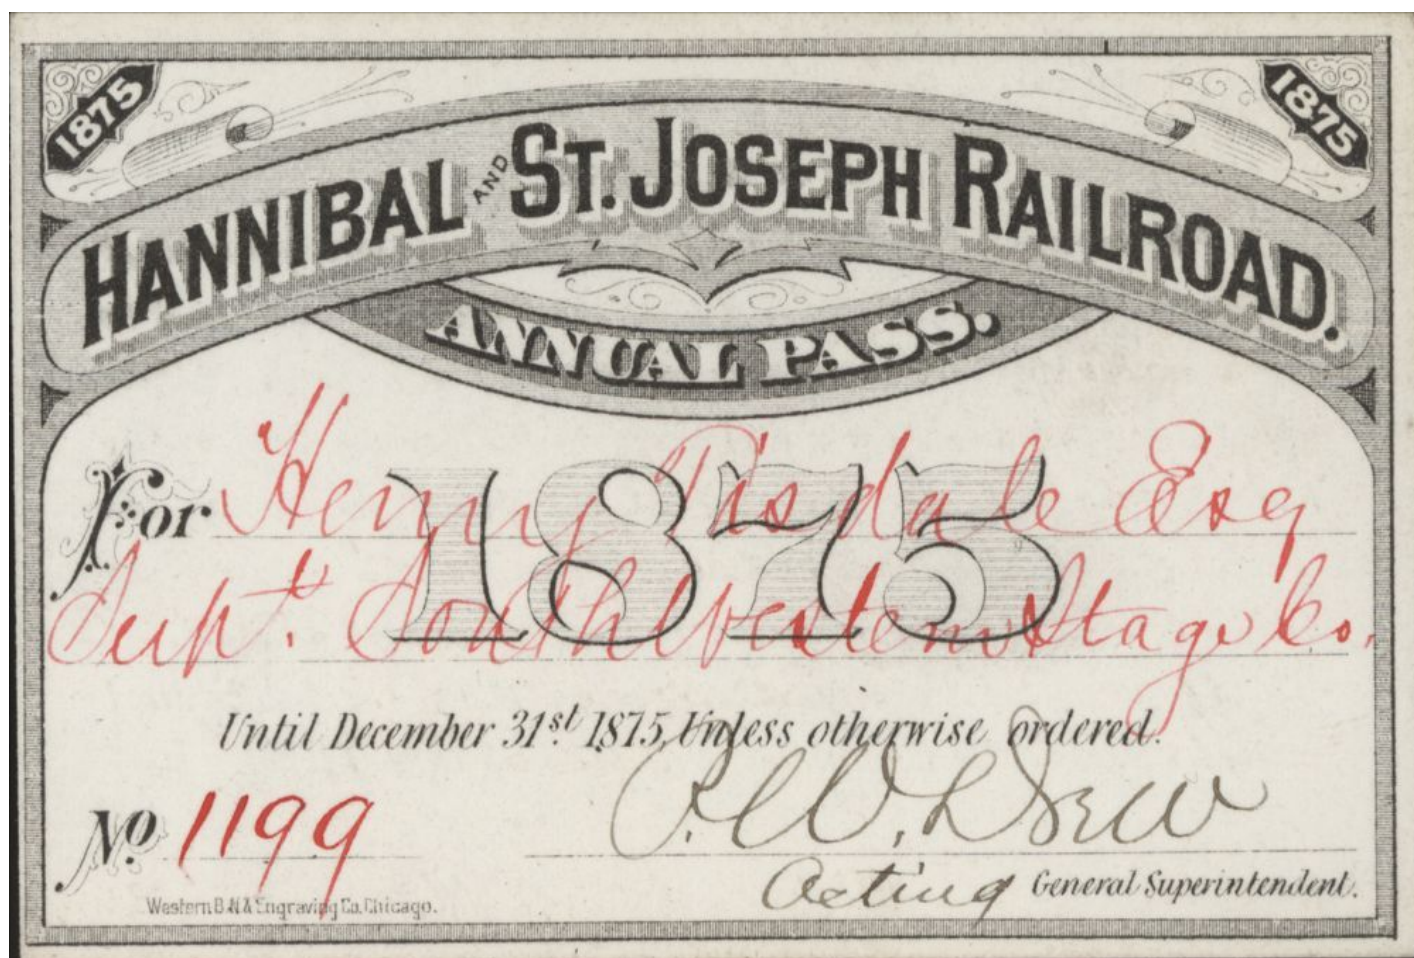 1875
1875
HANNIBAL AND ST. JOSEPH RAILROAD.
ANNUAL PASS.
1875
For Henry Tisdale Esq
Supt. South Western Stage Co.
Until December 31st. 1875, Unless otherwise ordered.
No. 1199
P. W. Drew
Acting General Superintendent.
Western B. N. & Engraving Co. Chicago.